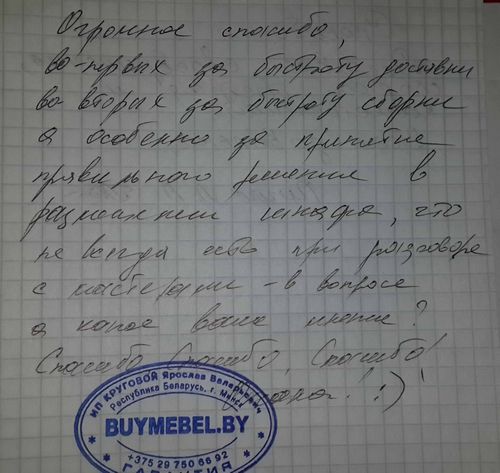 Огромное спасибо,
во-первых за быстроту доставки
во вторых за быстроту сборки
а особенно за принятие
правильного решения в
размещении шкафа, что
не всегда есть при разговоре
с мастерами - в вопросе
а какое ваше мнение?
Спасибо, Спасибо, Спасибо!
! :)
ИП КРУГОВОЙ Ярослав Валерьевич
Республика Беларусь, г. Минск
BUYMEBEL.BY
+375 29 750 66 92
ГАРАНТИЯ